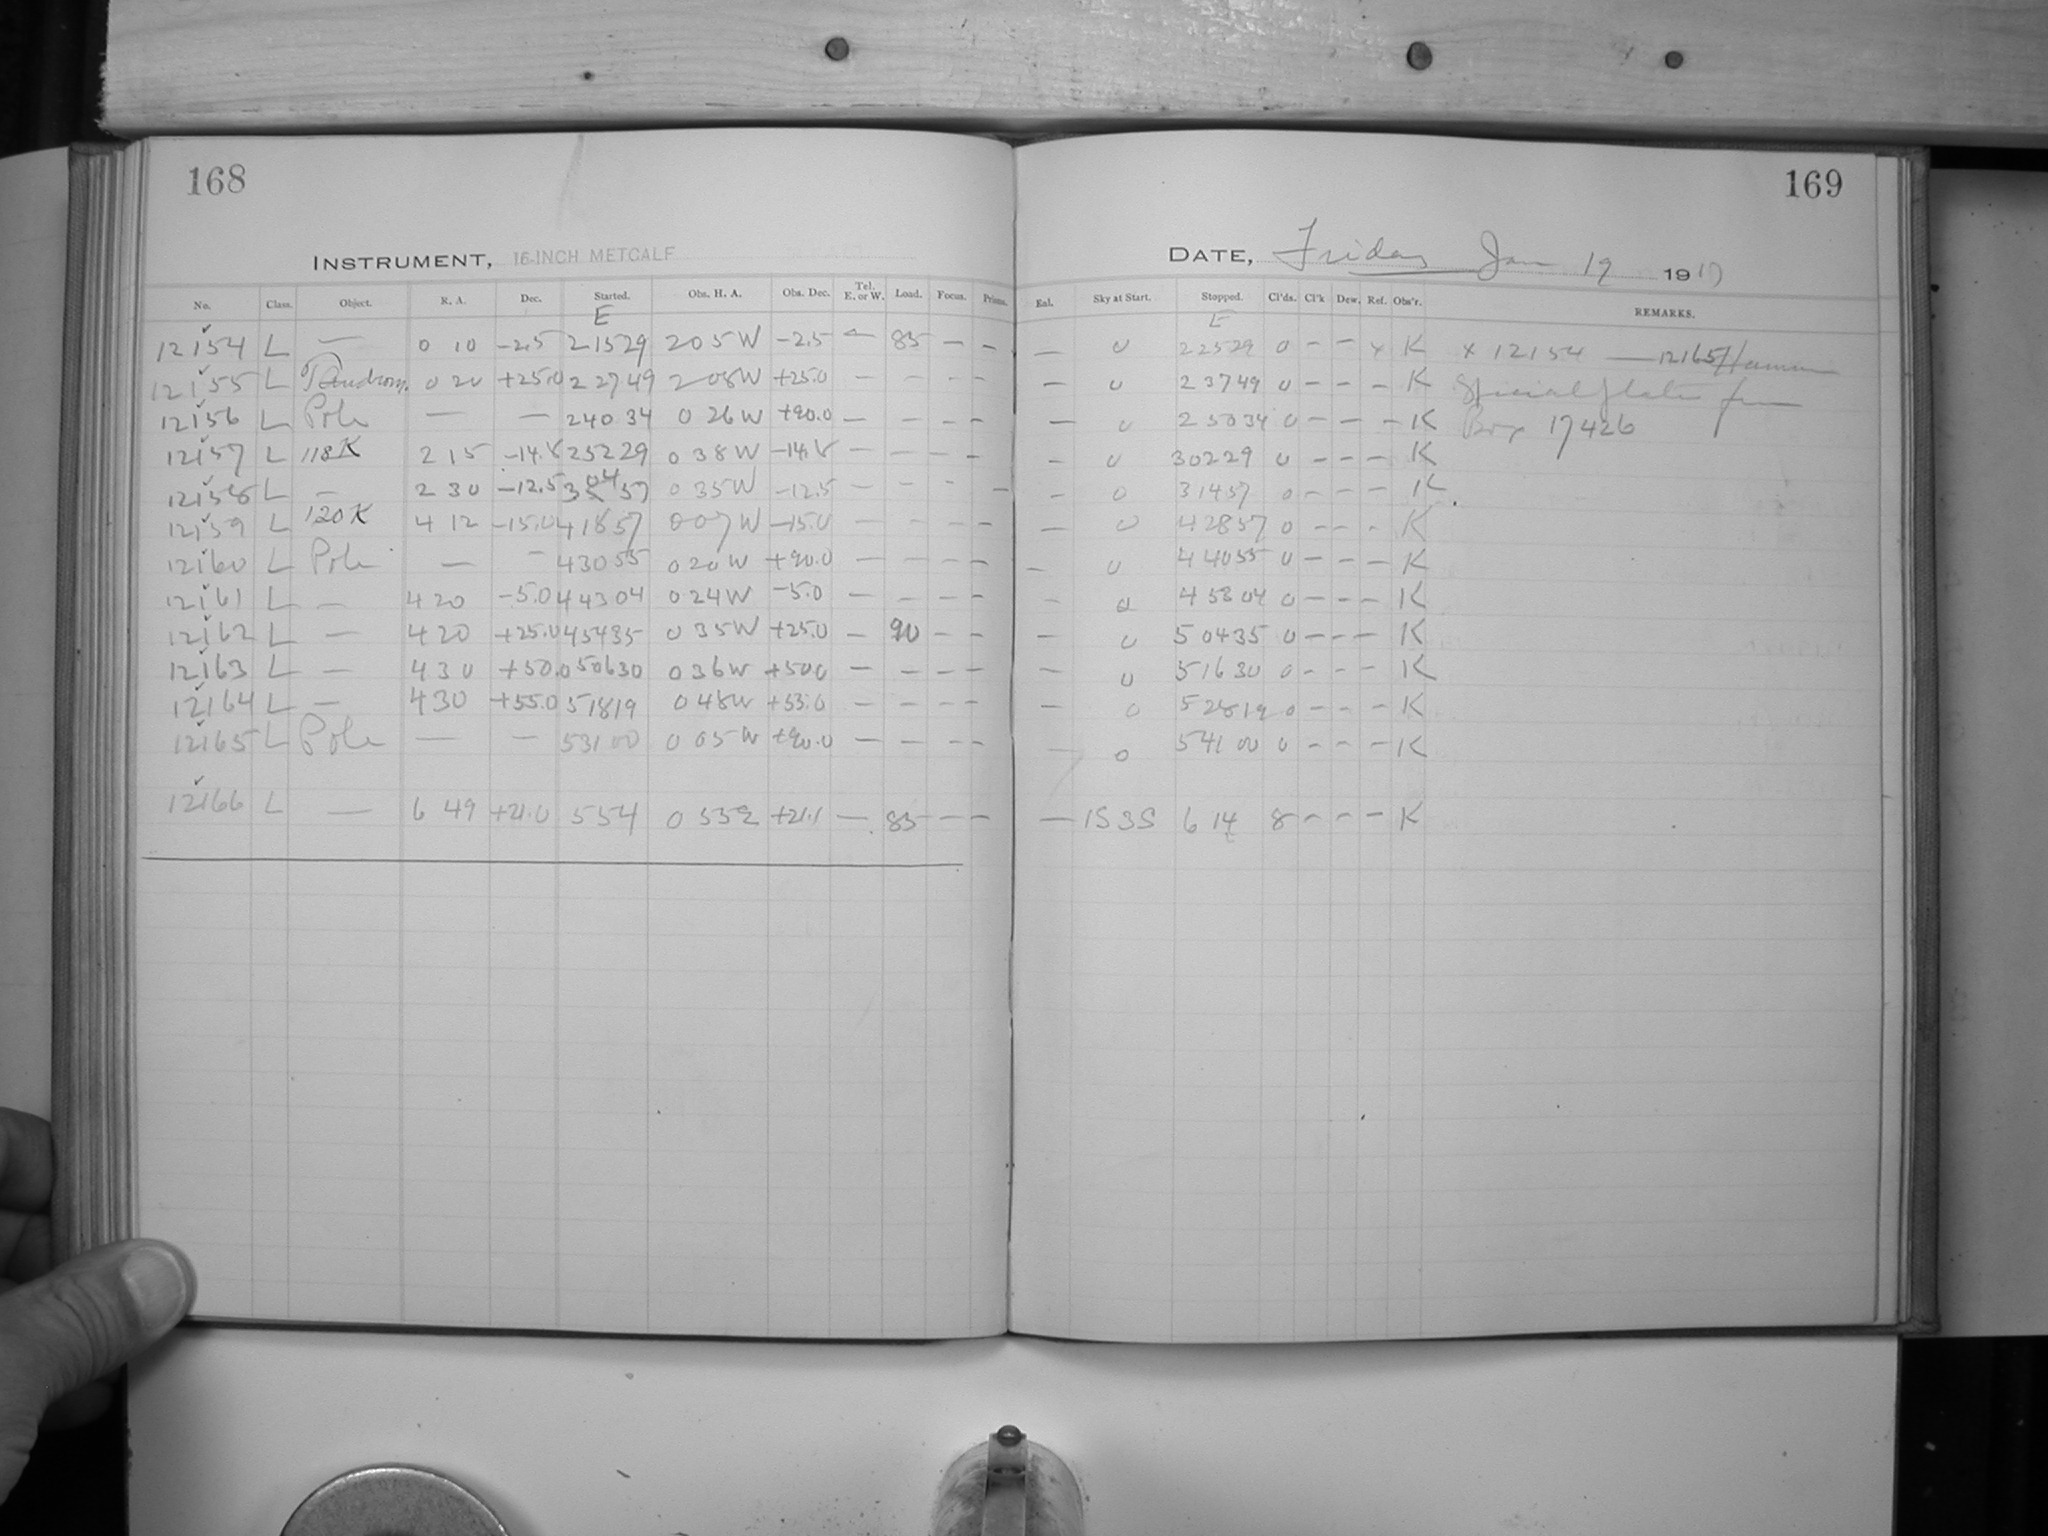 168
169
INSTRUMENT, 16-INCH METCALF
DATE, Friday Jan 19 1917
No. Class. Object. R. A. Dec. Started. Obs. H. A. Obs. Dec. Tel. E. or W. Load. Focus. Prism. Eal. Sky at Start. Stopped. Cl'ds. Cl'k Dew. Ref. Obs'r. REMARKS.
E E
12154 L — 0 10 -2.5 21529 205W -2.5 — 85 — — — 0 22529 0 - - x K x 12154 — 12165
12155 L 0 20 +25.0 22749 208W +25.0 — — — — — 0 23749 0 - - - K Special
12156 L Pole — — 24034 026W +90.0 — — — — — 0 25034 0 - - - K Box 17426
12157 L 118K 2 15 -14.8 25229 038W -14.8 — — — — — 0 30229 0 - - - K
12158 L — 2 30 -12.5 30457 035W -12.5 — — — — — 0 31457 0 - - - K
12159 L 120K 4 12 -15.0 41857 007W -15.0 — — — — — 0 42857 0 - - - K
12160 L Pole — — 43055 020W +90.0 — — — — — 0 44055 0 - - - K
12161 L — 420 -5.0 44304 024W -5.0 — — — — — 0 45304 0 - - - K
12162 L — 420 +25.0 45435 035W +25.0 — 90 — — — 0 50435 0 - - - K
12163 L — 430 +50.0 50630 036W +50.0 — — — — — 0 51630 0 - - - K
12164 L — 430 +55.0 51819 048W +55.0 — — — — — 0 52819 0 - - - K
12165 L Pole — — 53100 005W +90.0 — — — — — 0 54100 0 - - - K
12166 L — 6 49 +21.0 554 055E +21.1 — 85 — — — 1S3S 614 8 - - - K